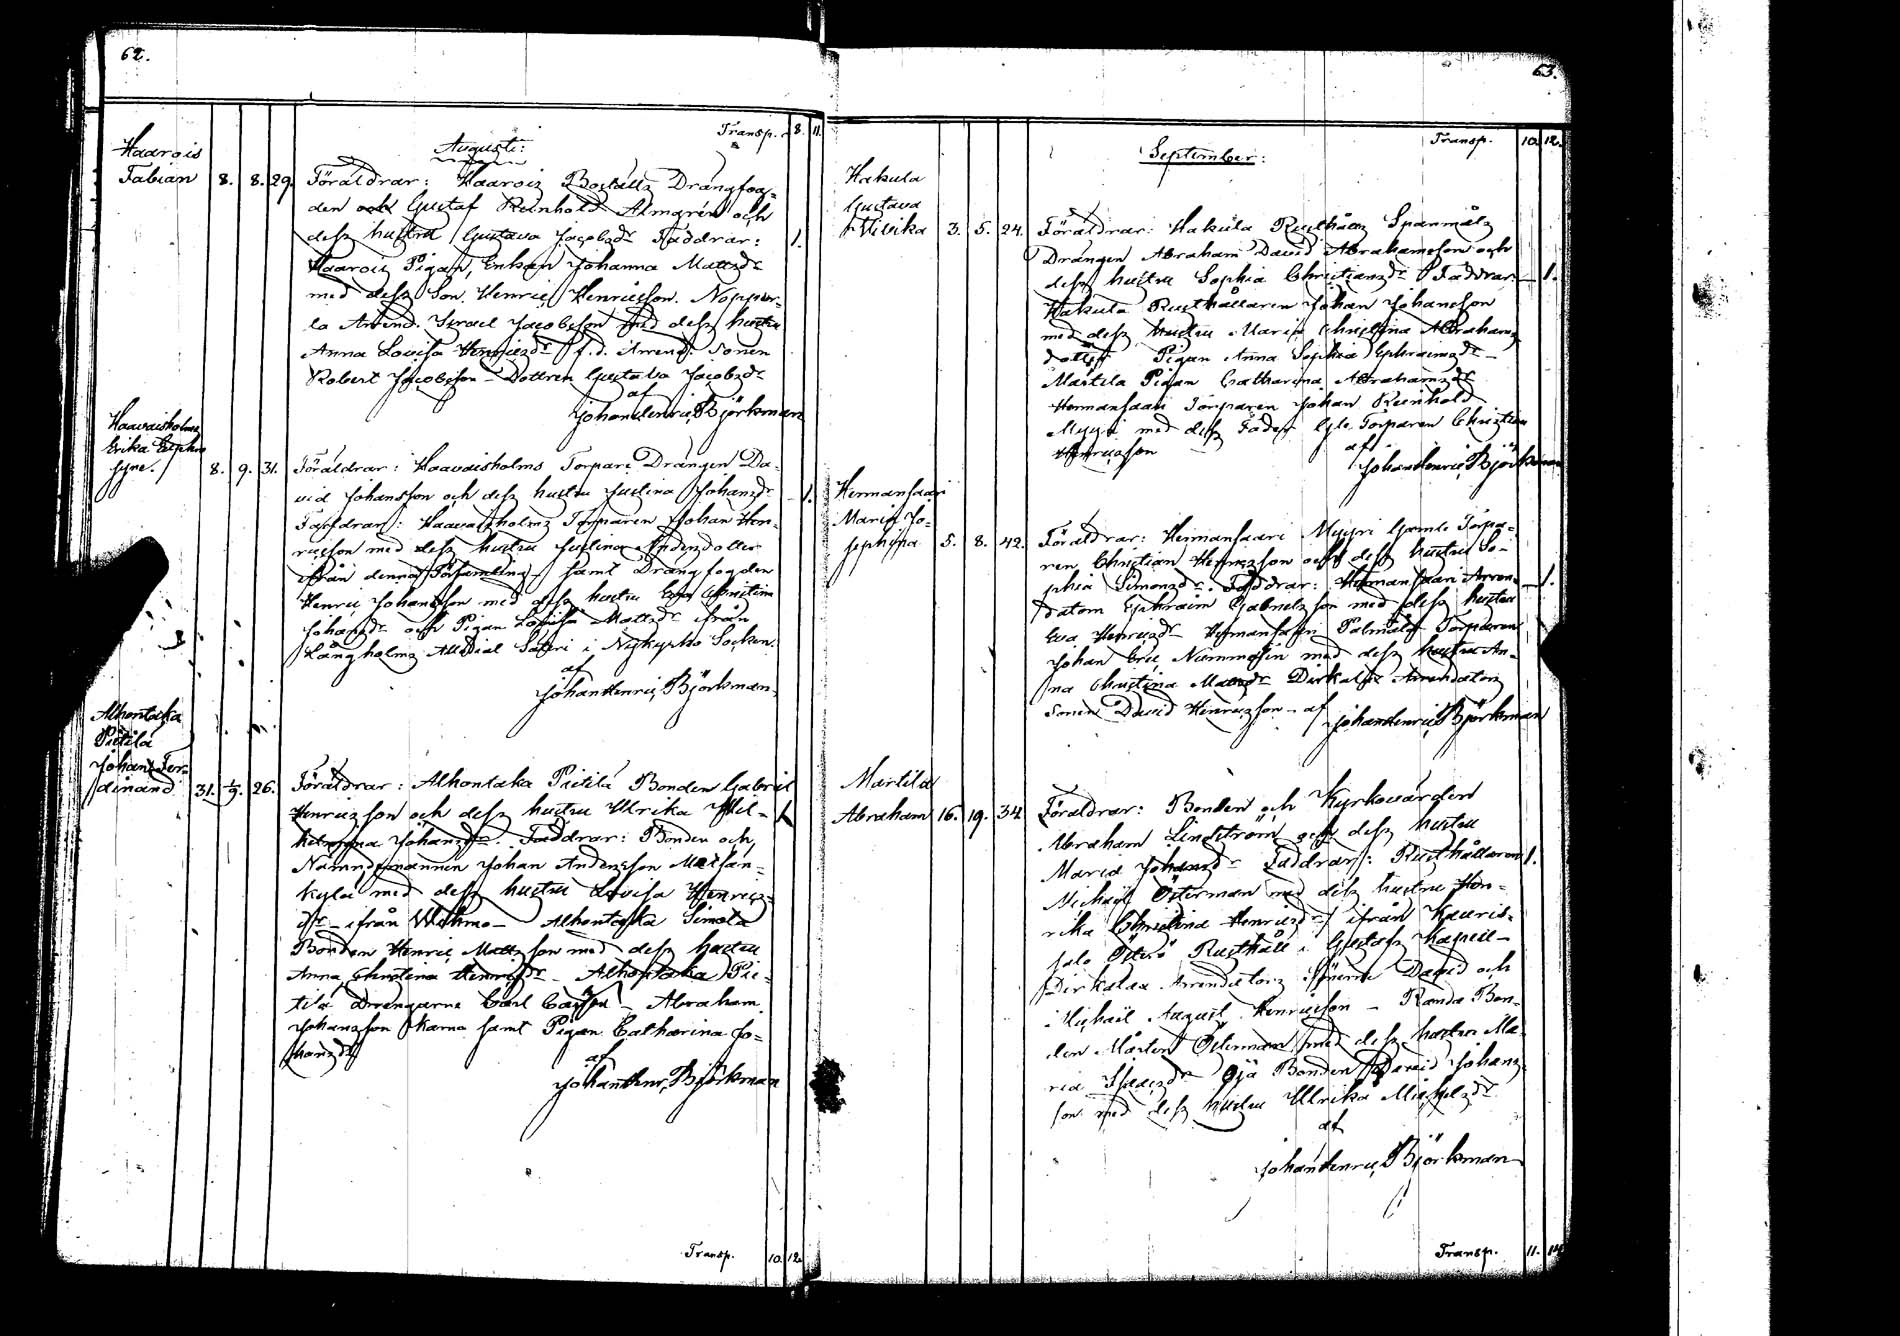 62.
Transp. 8. 11.
Augusti:
Haarois
Fabian 8. 8. 29. Föräldrar: Haarois Boställs Drängfog-
den och Gustaf Reinhold Almgrén och
dess hustru Gustava Jacobsdr Faddrar: 1.
Haarois Pigan, Enkan Johanna Mattsdr
med dess Son Henric Henricsson. Nopper-
la Arrend. Israel Jacobsson med dess hustru
Anna Lovisa Henricsdr f.d. Arrend. Sonen
Robert Jacobsson – Dottren Gustava Jacobsdr
af
Johan Henric Björkman
Haavaisholms
Erika
8. 9. 31. Föräldrar: Haavaisholms Torpare Drängen Da-
vid Johansson och dess hustru Justina Johansdr 1.
Faddrar: Haavaisholms Torparen Johan Hen-
ricsson med dess hustru Justina Andersdotter
ifrån denna Församling samt Drängfogden
Henric Johansson med dess hustru Eva Christina
Johansdr och Pigan Lovisa Mattsdr ifrån
Långholms Allodial Säteri i Nykyrko Socken.
af
Johan Henric Björkman
Alhontaka
Pietilä
Johan Fer-
dinand 31. 1/9. 26. Föräldrar: Alhontaka Pietilä Bonden Gabriel
Henricsson och dess hustru Ulrika Wil- 1.
helmina Johansdr. Faddrar: Bonden och
Nämndemannen Johan Andersson
kylä med dess hustru Lovisa Henrics-
dr – ifrån Wehmo – Alhontaka Simola
Bonden Henric Mattsson med dess hustru
Anna Christina Henricsdr – Alhontaka Pie-
tilä drengarne Carl – Abraham
Johansson samt Pigan Catharina Jo-
hansdr
af
Johan Henr. Björkman
Transp. 10. 12.
63.
Transp. 10. 12.
September:
Hakula
Gustava
3. 5. 24. Föräldrar: Hakula Rusthålls Spanmåls
Drängen Abraham David Abrahamsson och
dess hustru Sophia Christiansdr Faddrar – 1.
Hakula Rusthållaren Johan Johansson
med dess hustru Maria Christina Abrahams
dotter Pigan Anna Sophia Ephraimsdr –
Märtela Pigan Catharina Abrahamsdr
Hermansaari Torparen Johan Reinhold
Myyri med dess Fader Gle Torparen Christian
Henricsson af
Johan Henric Björkman
Hermansaari
Maria Jo-
sephina 5. 8. 42. Föräldrar: Hermansaari Myyri Gamle Torpa-
ren Christian Henricsson och dess hustru So-
phia Simonsdr. Faddrar: Hermansaari Arren- 1.
datorn Ephraim Gabrielsson med dess hustru
Eva Henricsdr Hermansaari Palmala Torparen
Johan Eric Nummelin med dess hustru An-
na Christina Mattsdr Dirkala Arrendators
Sonen David Henricsson – af Johan Henric Björkman
Martila
Abraham 16. 19. 34. Föräldrar: Bonden och Kyrkovärden
Abraham Lindström och dess hustru
Maria Johansdr Faddrar: Rusthållaren 1.
Michaël Österman med dess hustru Hen-
rika Christina Henricsdr ifrån Kauris-
salo Österö Rusthåll i Gustafs Kapell –
Dirkalax Arrendators Sönerne David och
Michaël August Henricsson – Randa Bon-
den Mårten Österman med dess hustru Ma-
ria Isaacsdr Öjä Bonden David Johans-
son med dess hustru Ulrika Michelsdr
af
Johan Henric Björkman
Transp. 11. 14.